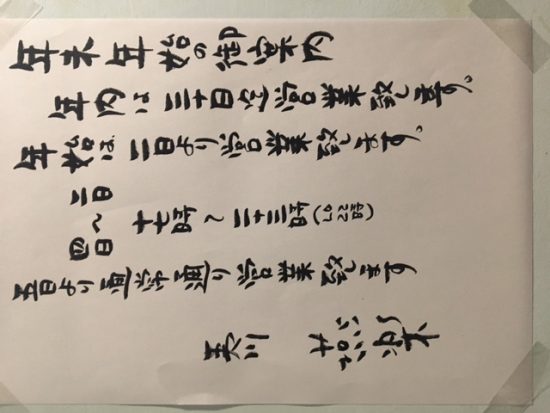 年末年始の御案内
年内は三十日迄営業致します。
年始は、二日より営業致します。
二日〜四日 十七時〜二十三時(LO22時)
五日より通常通り営業致します